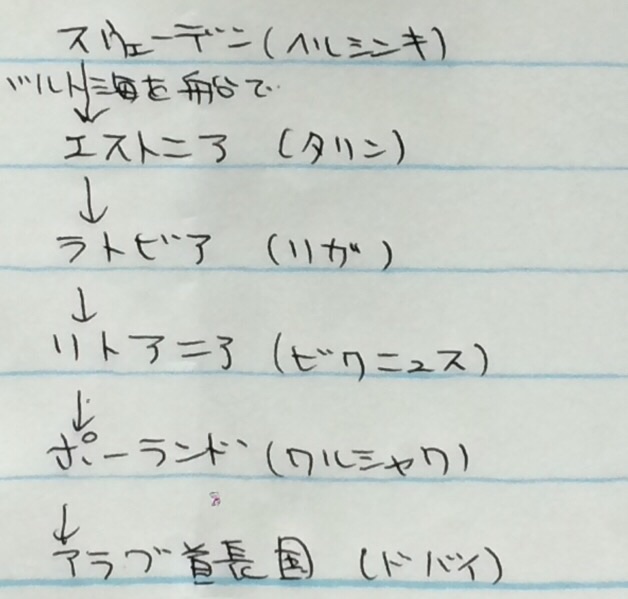 スウェーデン(ヘルシンキ)
バルト海を船で
↓
エストニア (タリン)
↓
ラトビア (リガ)
↓
リトアニア (ビクニュス)
↓
ポーランド (ワルシャワ)
↓
アラブ首長国 (ドバイ)